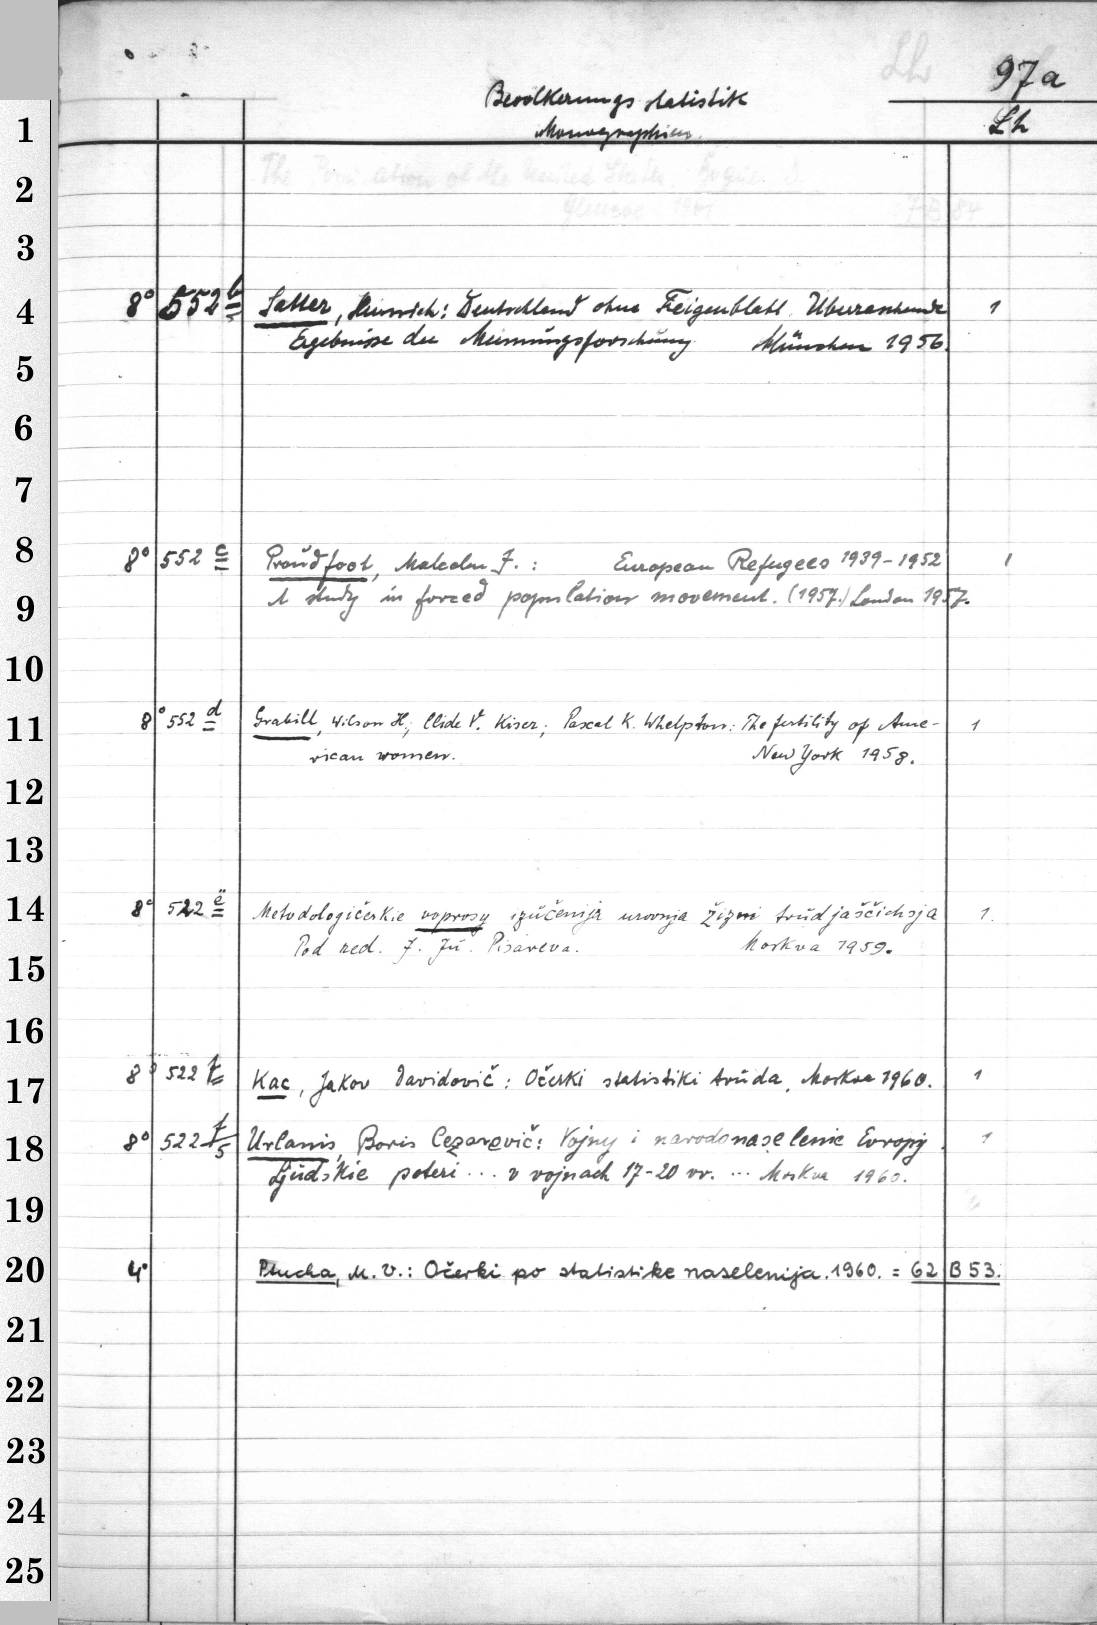 97a
Bevölkerungsstatistik
Lh
Monographien.
1
2
3
4
5
6
7
8
9
10
11
12
13
14
15
16
17
18
19
20
21
22
23
24
25
8° 552 b Satter, Heinrich: Deutschland ohne Feigenblatt. Überraschende 1
Ergebnisse der Meinungsforschung München 1956.
8° 552 c Proudfoot, Malcolm J.: European Refugees 1939-1952 1
A study in forced population movement. (1957.) London 1957.
8° 552 d Grabill, Wilson H.; Clide V. Kiser; Pascal K. Whelpton: The fertility of Ame-
rican women. New York 1958. 1
8° 522 e Metodologičeskie voprosy izučenija urovnja žizni trudjaščichsja 1.
Pod red. I. Ju. Pisareva. Moskva 1959.
8° 522 f Kac, Jakov Davidovič: Očerki statistiki truda. Moskva 1960. 1
8° 522 f/5 Urlanis, Boris Cezarevič: Vojny i narodonaselenie Evropy. 1
Ljudskie poteri ... v vojnach 17-20 vv. ... Moskva 1960.
4° Ptucha, M. V.: Očerki po statistike naselenija. 1960. = 62 B 53.